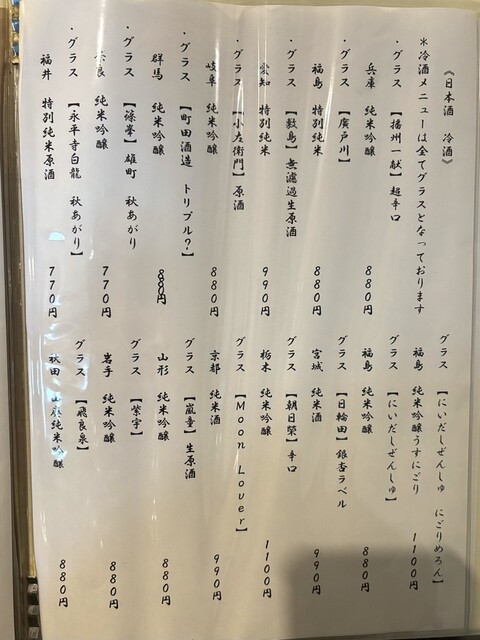 《日本酒 冷酒》
＊冷酒メニューは全てグラスとなっております
・グラス 【播州一献】超辛口
兵庫 純米吟醸 880円
・グラス 【廣戸川】
福島 特別純米 880円
・グラス 【敷島】無濾過生原酒
愛知 特別純米 990円
・グラス 【小左衛門】原酒
岐阜 純米吟醸 880円
・グラス 【町田酒造 トリプル？】
群馬 純米吟醸 880円
・グラス 【篠峯】雄町 秋あがり
奈良 純米吟醸 770円
・グラス 【永平寺白龍 秋あがり】
福井 特別純米原酒 770円
グラス 【にいだしぜんしゅ にごりめろん】
福島 純米吟醸うすにごり 1100円
グラス 【にいだしぜんしゅ】
福島 純米吟醸 880円
グラス 【日輪田】銀杏ラベル
宮城 純米酒 990円
グラス 【朝日榮】辛口
栃木 純米吟醸 1100円
グラス 【Moon Lover】
京都 純米酒 990円
グラス 【嵐童】生原酒
山形 純米吟醸 880円
グラス 【紫宙】
岩手 純米吟醸 880円
グラス 【飛良泉】
秋田 山廃純米吟醸 880円